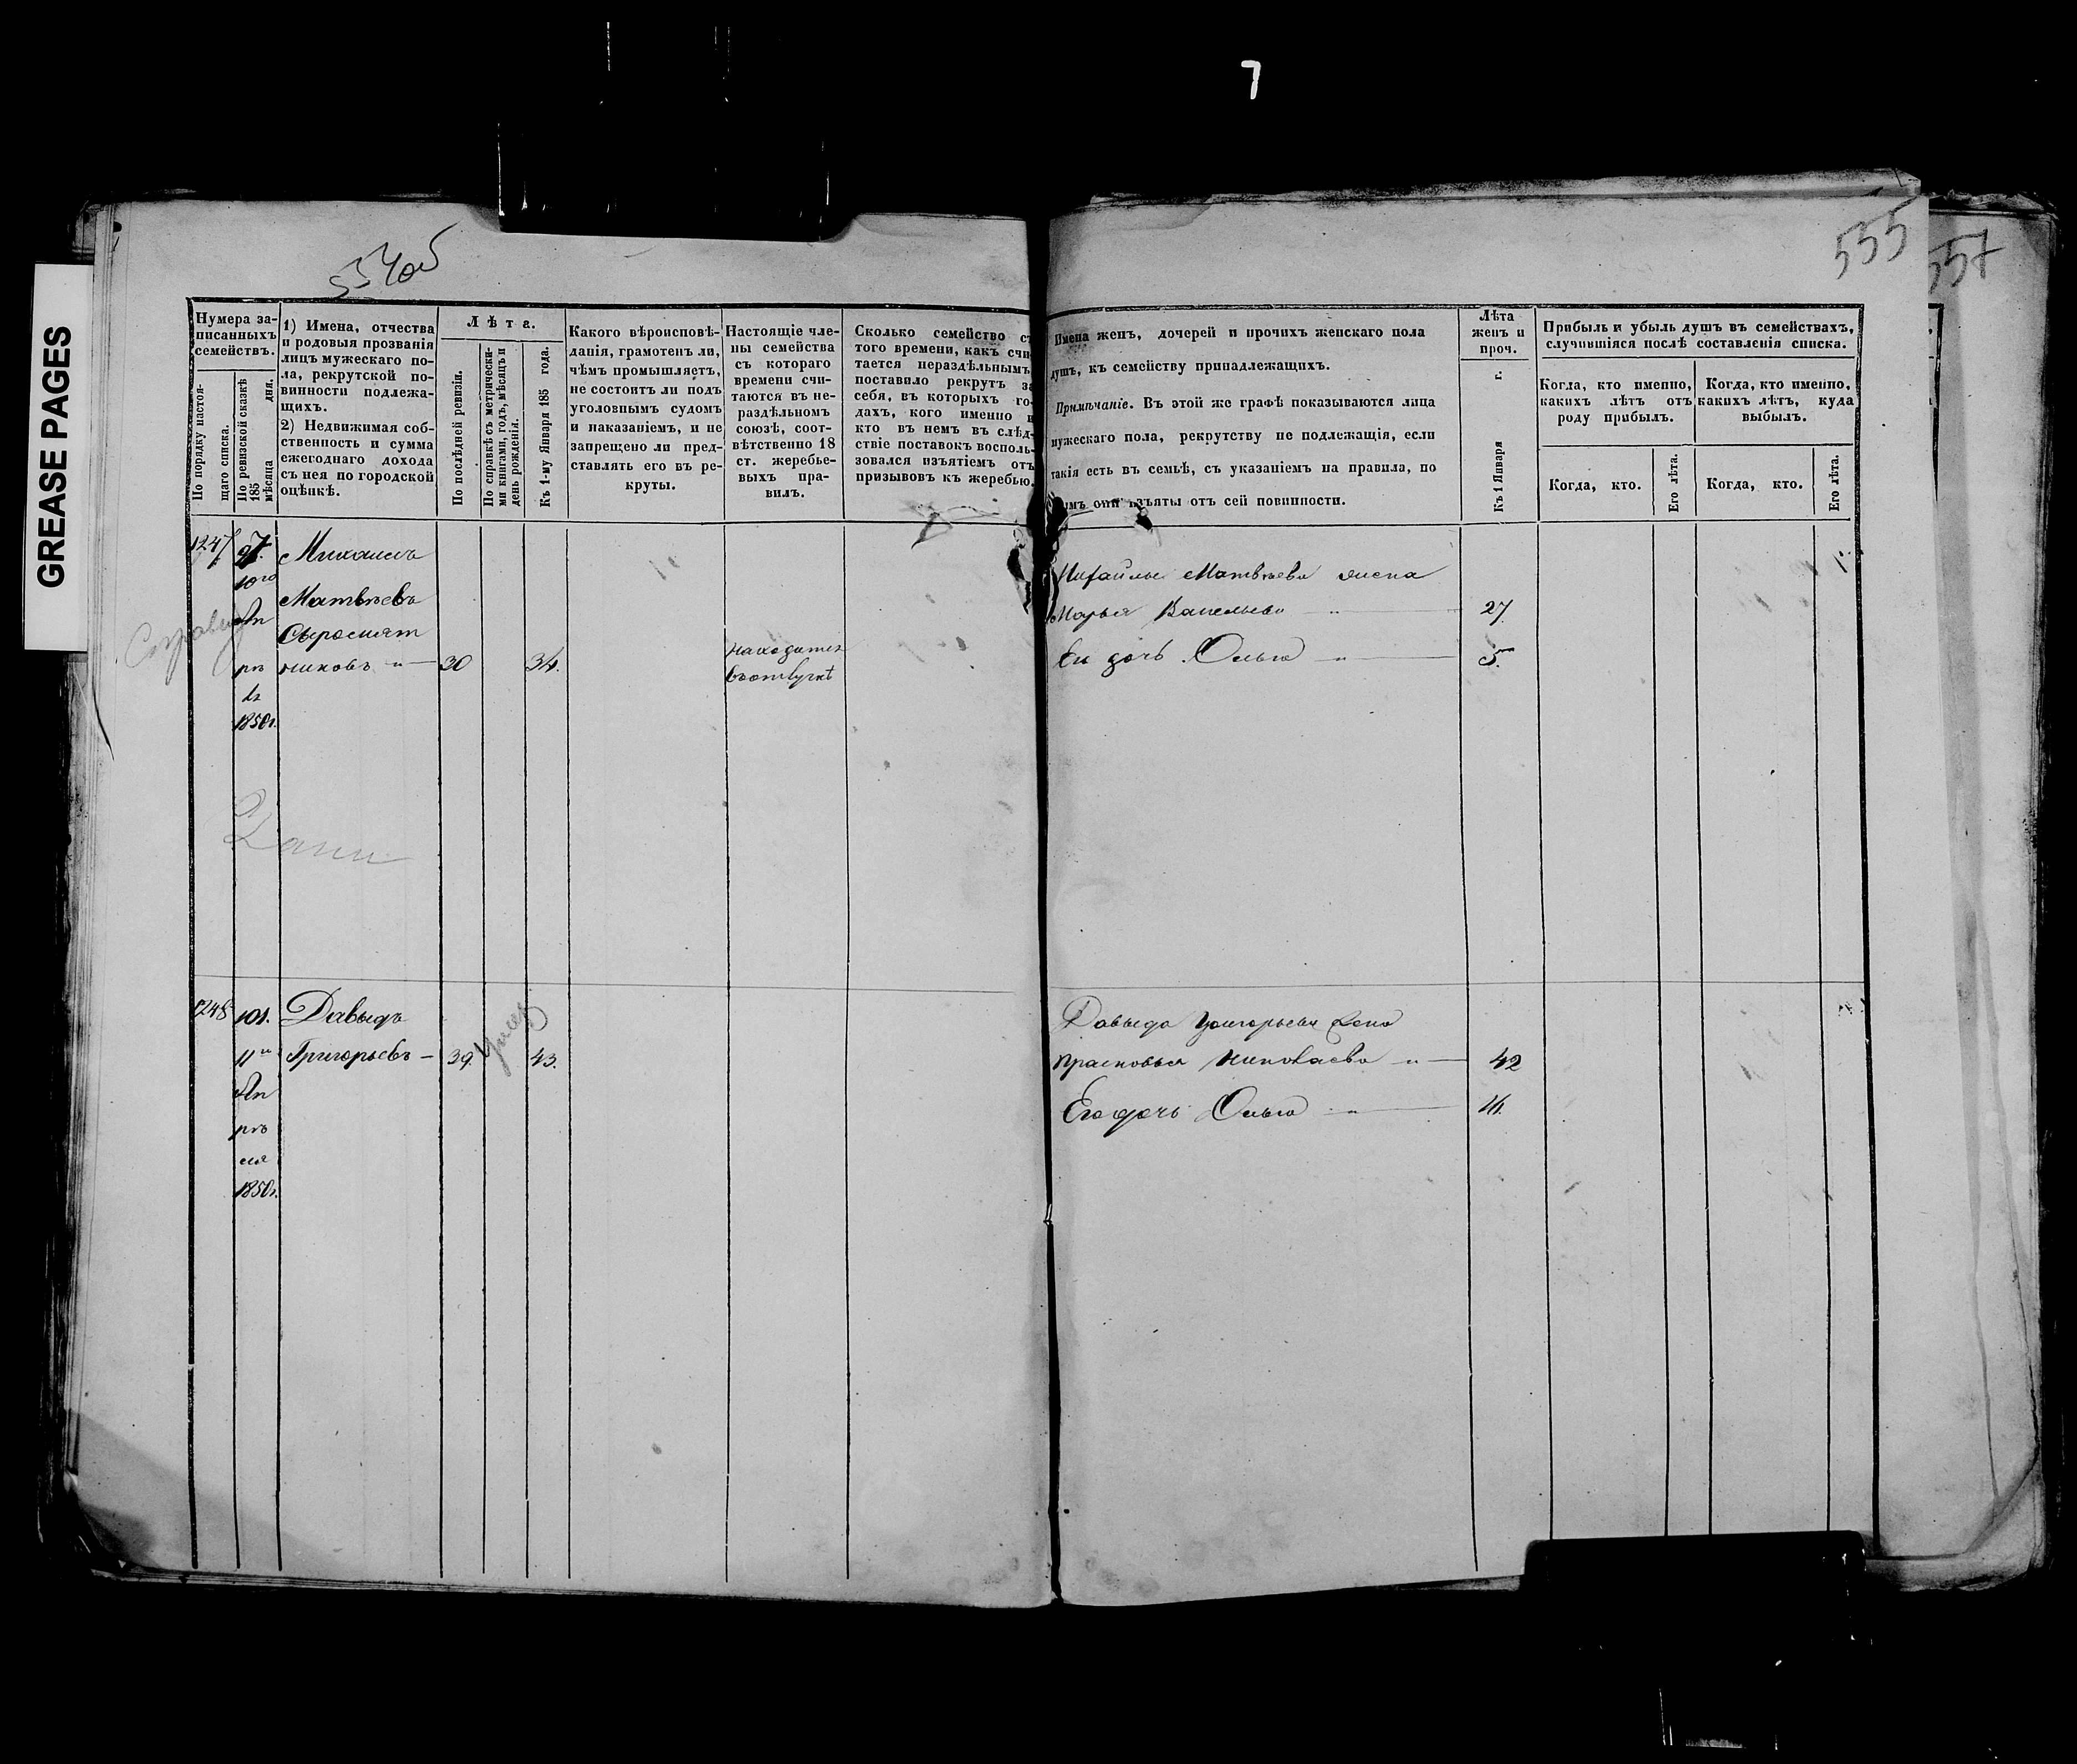 7
GREASE PAGES
554об
555
557
Нумера за-
писанныхъ
семействъ.
По порядку настоя-
щаго списка.
По ревизской сказкѣ
185 дня.
мѣсяца
1) Имена, отчества
и родовыя прозванія
лицъ мужескаго по-
ла, рекрутской по-
винности подлежа-
щихъ.
2) Недвижимая соб-
ственность и сумма
ежегоднаго дохода
съ нея по городской
оцѣнкѣ.
Лѣта.
По послѣдней ревизіи.
По справкѣ съ метрически-
ми книгами, годъ, мѣсяцъ и
день рожденія.
Къ 1-му Января 185 года.
Какого вѣроисповѣ-
данія, грамотенъ ли,
чѣмъ промышляетъ,
не состоитъ ли подъ
уголовнымъ судомъ
и наказаніемъ, и не
запрещено ли пред-
ставлять его въ ре-
круты.
Настоящіе чле-
ны семейства
съ котораго
времени счи-
таются въ не-
раздѣльномъ
союзѣ, соот-
вѣтственно 18
ст. жеребье-
выхъ пра-
вилъ.
Сколько семейство с
того времени, какъ счи-
тается нераздѣльнымъ
поставило рекрутъ за
себя, въ которыхъ го-
дахъ, кого именно и
кто въ немъ въ слѣд-
ствіе поставокъ восполь-
зовался изъятіемъ отъ
призывовъ къ жеребью.
Имена женъ, дочерей и прочихъ женскаго пола
душъ, къ семейству принадлежащихъ.
Примѣчаніе. Въ этой же графѣ показываются лица
мужескаго пола, рекрутству не подлежащія, если
такія есть въ семьѣ, съ указаніемъ на правила, по
имъ они изъяты отъ сей повинности.
Лѣта
женъ и
проч.
Къ 1 Января г.
Прибыль и убыль душъ въ семействахъ,
случившіяся послѣ составленія списка.
Когда, кто именно,
какихъ лѣтъ отъ
роду прибылъ.
Когда, кто именно,
какихъ лѣтъ, куда
выбылъ.
Когда, кто.
Его лѣта.
Когда, кто.
Его лѣта.
1247
10го
Ап
рѣ
ля
1850г.
Михаилъ
Матвѣевъ
Сыромят
никовъ 30 34.
находится
въ отлучкѣ
Михайлы Матвѣева жена
Марья Васильева 27.
Ея дочь Ольга 5.
1248 101. Давыдъ
11го Григорьевъ 39. умер 43.
Ап
рѣ
ля
1850г.
Давыда Григорьева жена
Прасковья Николаева 42
Его дочь Ольга 16.